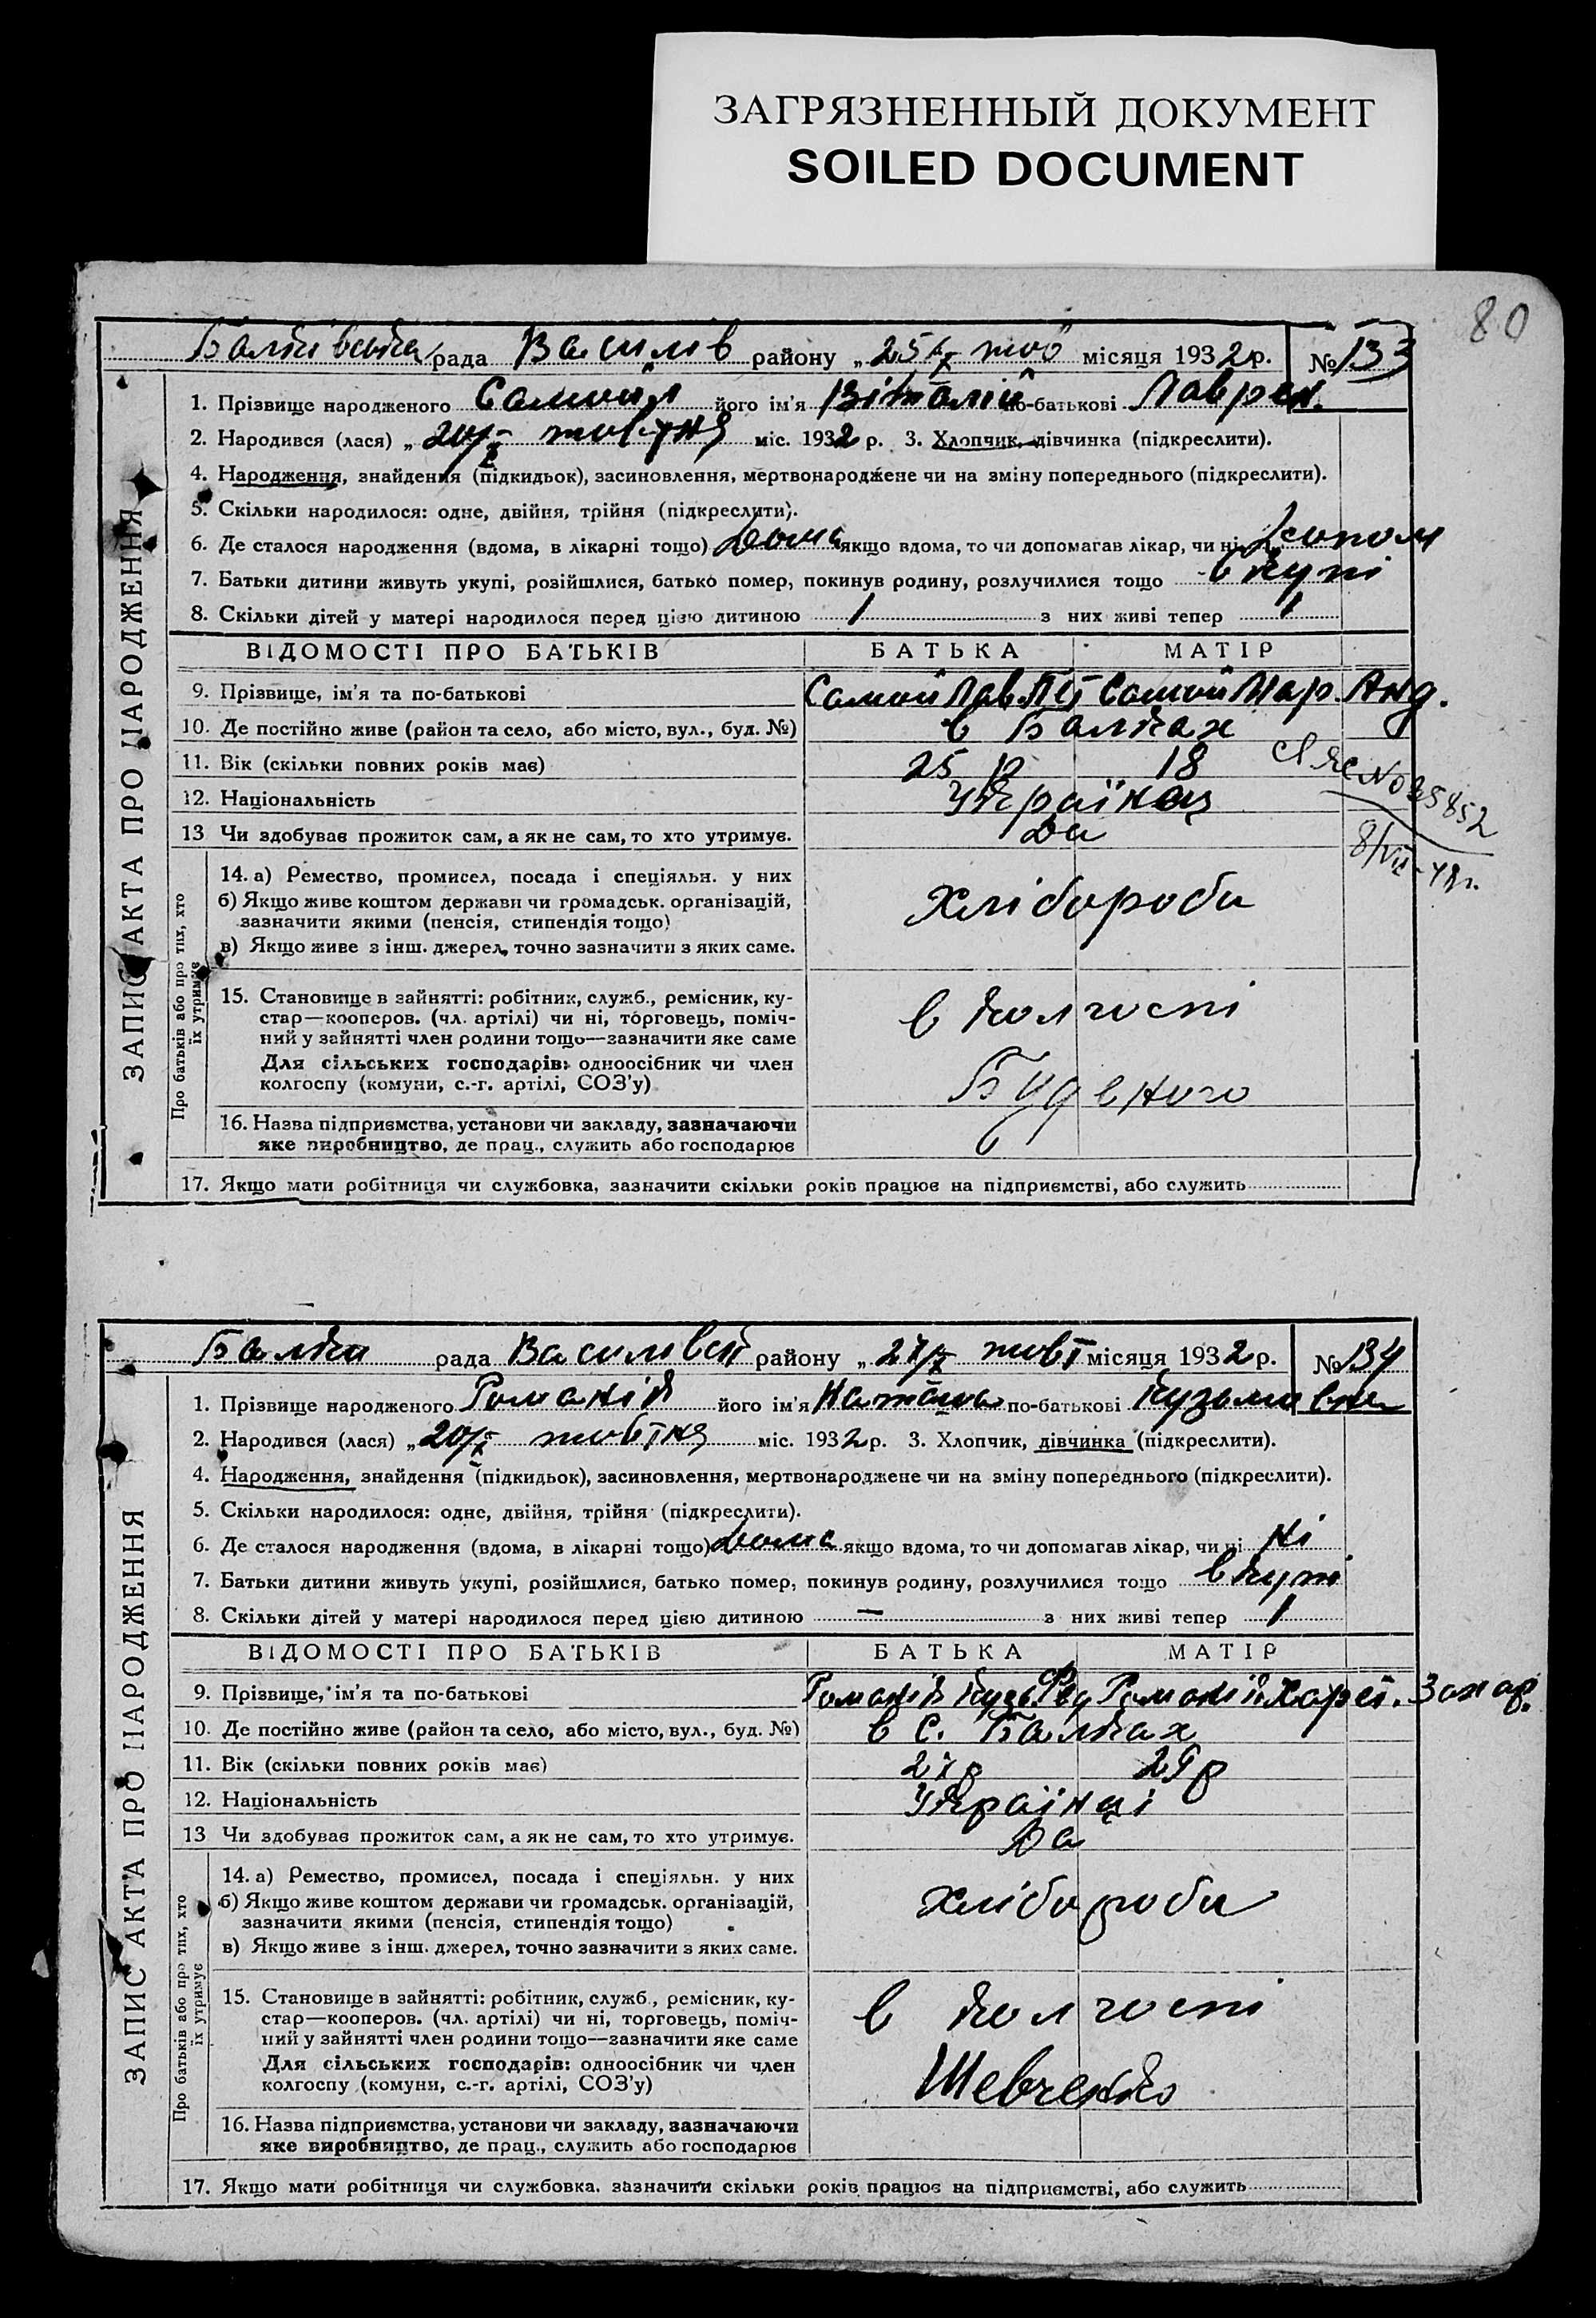 ЗАГРЯЗНЕННЫЙ ДОКУМЕНТ
SOILED DOCUMENT
80
Балківська рада Василів району „25/X жов місяця 1932 р. № 133
ЗАПИС АКТА ПРО НАРОДЖЕННЯ
1. Прізвище народженого Самойл його ім'я Віталій по-батькові Лаврен.
2. Народився (лася) „20/X жовтня міс. 1932 р. 3. Хлопчик, дівчинка (підкреслити).
4. Народження, знайдення (підкидьок), засиновлення, мертвонароджене чи на зміну попереднього (підкреслити).
5. Скільки народилося: одне, двійня, трійня (підкреслити).
6. Де сталося народження (вдома, в лікарні тощо) Дома якщо вдома, то чи допомагав лікар, чи ні
7. Батьки дитини живуть укупі, розійшлися, батько помер, покинув родину, розлучилися тощо вкупі
8. Скільки дітей у матері народилося перед цією дитиною 1 з них живі тепер 1
ВІДОМОСТІ ПРО БАТЬКІВ БАТЬКА МАТІР
9. Прізвище, ім'я та по-батькові Самой Лав Самой Мар. Анд.
10. Де постійно живе (район та село, або місто, вул., буд. №) в Балках
11. Вік (скільки повних років має) 25 р 18
№ 35852
8/VII-48г.
12. Національність Українц
13 Чи здобуває прожиток сам, а як не сам, то хто утримує. Да
Про батьків або про тих, хто їх утримує
14. а) Ремество, промисел, посада і спеціяльн. у них
б) Якщо живе коштом держави чи громадськ. організацій,
зазначити якими (пенсія, стипендія тощо)
в) Якщо живе з інш. джерел, точно зазначити з яких саме.
Хлібороби
15. Становище в зайнятті: робітник, служб., ремісник, ку-
стар—кооперов. (чл. артілі) чи ні, торговець, поміч-
ний у зайнятті член родини тощо—зазначити яке саме
Для сільських господарів: одноосібник чи член
колгоспу (комуни, с.-г. артілі, СОЗ'у)
в колгоспі
Буденого
16. Назва підприємства, установи чи закладу, зазначаючи
яке виробництво, де прац., служить або господарює
17. Якщо мати робітниця чи службовка, зазначити скільки років працює на підприємстві, або служить
Балки рада Василівсй району „27/X жовт місяця 1932 р. № 134
ЗАПИС АКТА ПРО НАРОДЖЕННЯ
1. Прізвище народженого Романік його ім'я Наташа по-батькові Кузьмовна
2. Народився (лася) „20/X жовтня міс. 1932 р. 3. Хлопчик, дівчинка (підкреслити).
4. Народження, знайдення (підкидьок), засиновлення, мертвонароджене чи на зміну попереднього (підкреслити).
5. Скільки народилося: одне, двійня, трійня (підкреслити).
6. Де сталося народження (вдома, в лікарні тощо) Дома якщо вдома, то чи допомагав лікар, чи ні Ні
7. Батьки дитини живуть укупі, розійшлися, батько помер, покинув родину, розлучилися тощо вкупі
8. Скільки дітей у матері народилося перед цією дитиною — з них живі тепер 1
ВІДОМОСТІ ПРО БАТЬКІВ БАТЬКА МАТІР
9. Прізвище, ім'я та по-батькові Романік Кузь. Романік Захар.
10. Де постійно живе (район та село, або місто, вул., буд. №) в с. Балках
11. Вік (скільки повних років має) 27 р 29 р
12. Національність Українці
13 Чи здобуває прожиток сам, а як не сам, то хто утримує. Да
Про батьків або про тих, хто їх утримує
14. а) Ремество, промисел, посада і спеціяльн. у них
б) Якщо живе коштом держави чи громадськ. організацій,
зазначити якими (пенсія, стипендія тощо)
в) Якщо живе з інш. джерел, точно зазначити з яких саме.
Хлібороби
15. Становище в зайнятті: робітник, служб., ремісник, ку-
стар—кооперов. (чл. артілі) чи ні, торговець, поміч-
ний у зайнятті член родини тощо—зазначити яке саме
Для сільських господарів: одноосібник чи член
колгоспу (комуни, с.-г. артілі, СОЗ'у)
в колгоспі
Шевченко
16. Назва підприємства, установи чи закладу, зазначаючи
яке виробництво, де прац., служить або господарює
17. Якщо мати робітниця чи службовка. зазначити скільки років працює на підприємстві, або служить